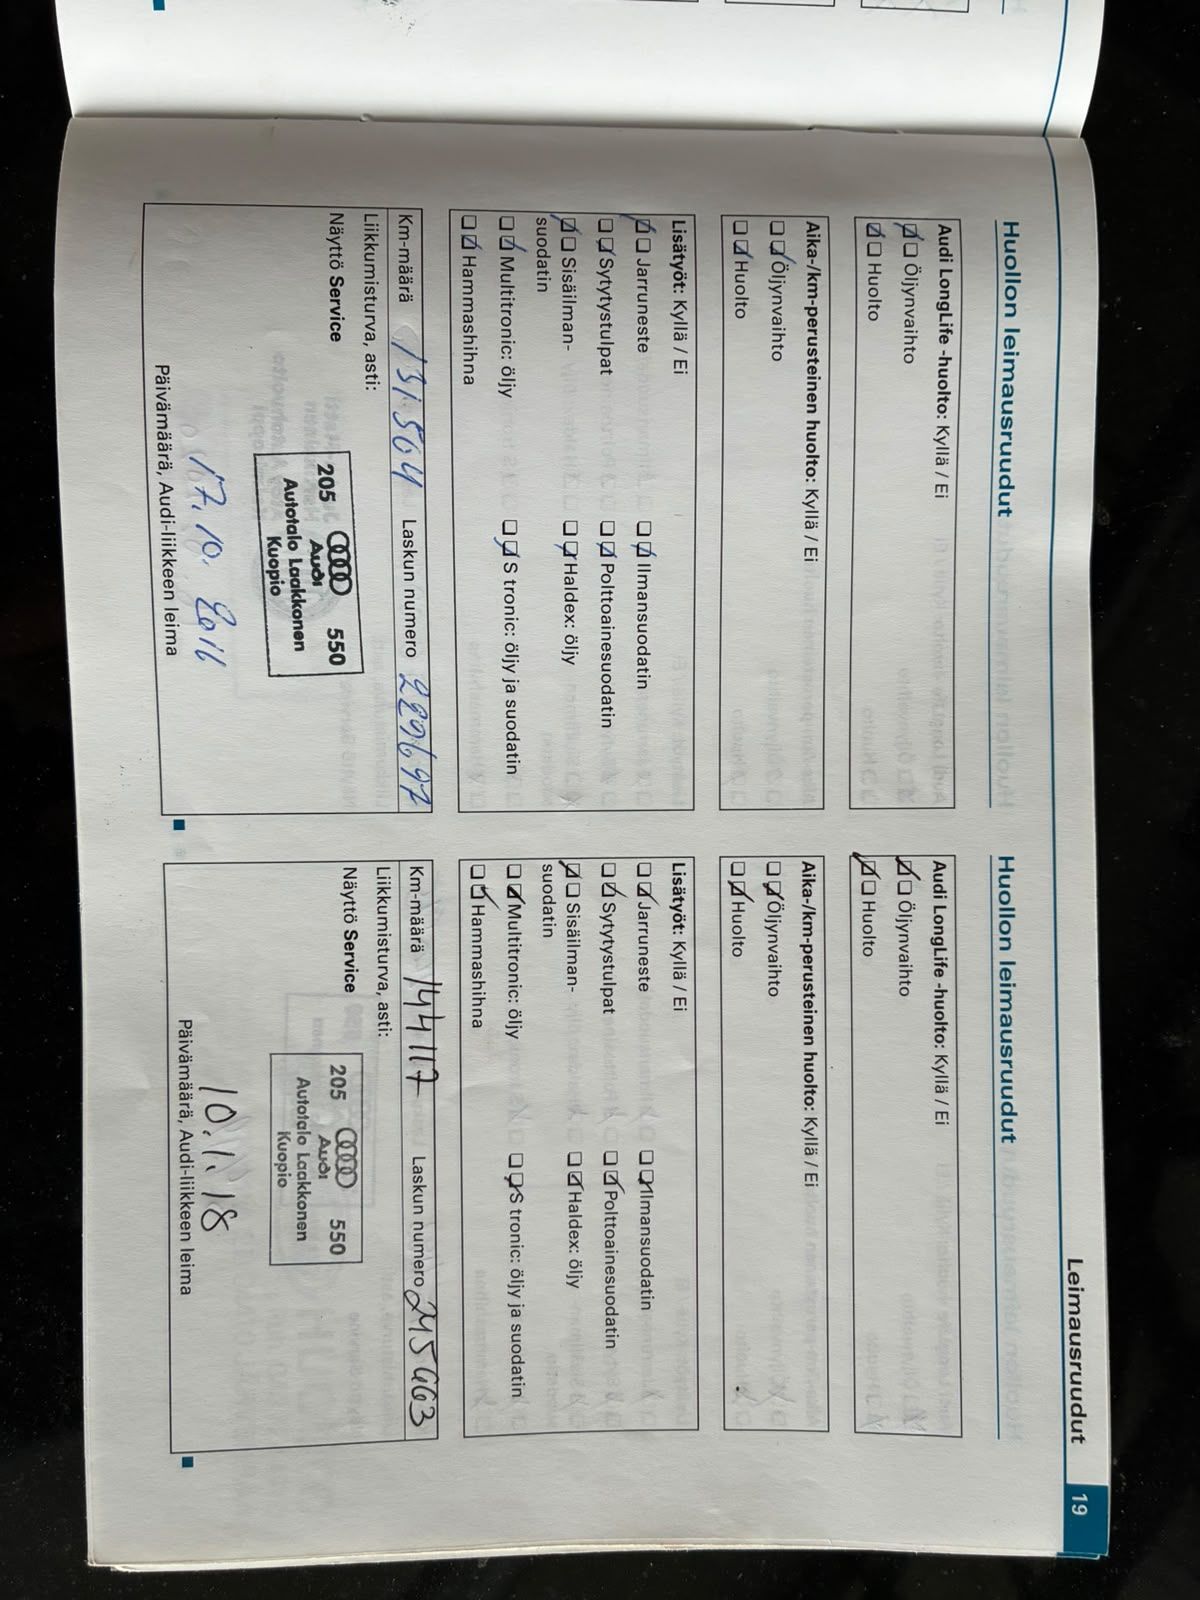 Leimausruudut 19
Huollon leimausruudut
Audi LongLife -huolto: Kyllä / Ei
Öljynvaihto
Huolto
Aika-/km-perusteinen huolto: Kyllä / Ei
Öljynvaihto
Huolto
Lisätyöt: Kyllä / Ei
Jarruneste Ilmansuodatin
Sytytystulpat Polttoainesuodatin
Sisäilman- Haldex: öljy
suodatin
Multitronic: öljy S tronic: öljy ja suodatin
Hammashihna
Km-määrä 131.504 Laskun numero
Liikkumisturva, asti:
Näyttö Service
205 Audi 550
Autotalo Laakkonen
Kuopio
17.10.2016
Päivämäärä, Audi-liikkeen leima
Huollon leimausruudut
Audi LongLife -huolto: Kyllä / Ei
Öljynvaihto
Huolto
Aika-/km-perusteinen huolto: Kyllä / Ei
Öljynvaihto
Huolto
Lisätyöt: Kyllä / Ei
Jarruneste Ilmansuodatin
Sytytystulpat Polttoainesuodatin
Sisäilman- Haldex: öljy
suodatin
Multitronic: öljy S tronic: öljy ja suodatin
Hammashihna
Km-määrä 144117 Laskun numero
Liikkumisturva, asti:
Näyttö Service
205 Audi 550
Autotalo Laakkonen
Kuopio
10.1.18
Päivämäärä, Audi-liikkeen leima